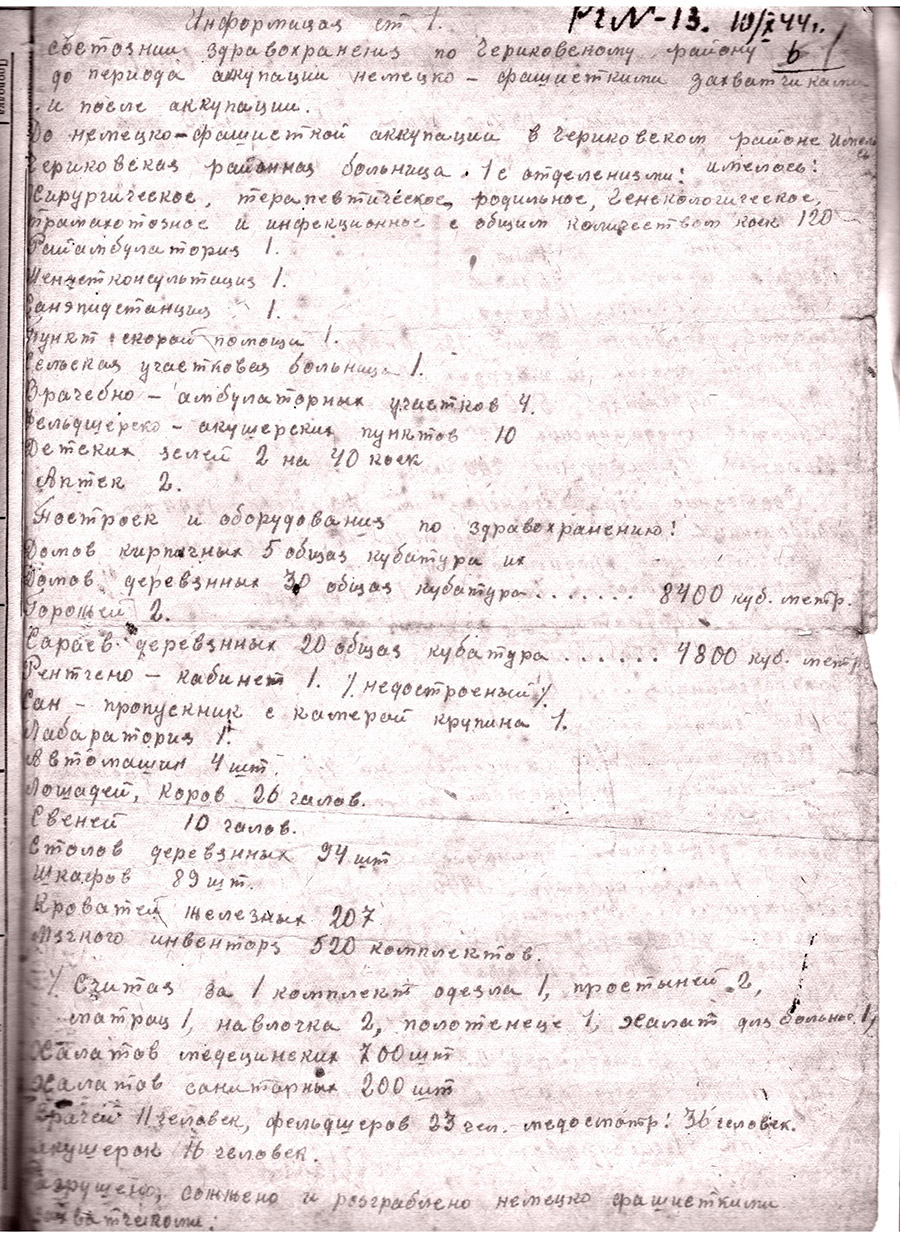 Информация ст 1.
РгN-13. 10/X 44г.
состоянии здравохранения по Чериковскому району
6
до периода аккупации немецко-фашисткими захватчиками
и после аккупации.
До немецко-фашисткой аккупации в Чериковском районе имелось
Чериковская районная больница 1 с отделениями: имелось:
Хирургическое, терапевтическое, родильное, Генекологическое,
трамахотозное и инфекционное с общим количеством коек 120
Райамбулатория 1.
Жендетконсультация 1.
Санэпидстанция 1.
Пункт скорай помощи 1.
Сельская участковая больница 1.
Врачебно - амбулаторных участков 4.
Фельдшерско - акушерских пунктов 10
Детских яслей 2 на 40 коек
Аптек 2.
Построек и оборудования по здравохранению!
Домов кирпичных 5 общая кубатура их
Домов деревянных 30 общая кубатура........ 8400 куб. метр.
2.
Сараев деревянных 20 общая кубатура ...... 4800 куб. метр
Рентгено - кабинет 1. /недостроеный/.
Сан - пропускник с камерай крупина 1.
Лабаратория 1.
Автомашин 4 шт.
Лошадей, коров 26 галов.
Свеней 10 галов.
Столов деревянных 94 шт
Шкафов 89 шт.
Кроватей железных 207
Мягкого инвенторя 520 комплектов.
/ Считая за 1 комплект одеяла 1, простыней 2,
матрац 1, навлочка 2, полотенеце 1, халат для больног. 1/
Халатов медецинских 700 шт
Халатов санитарных 200 шт
Врачей 11 человек, фельдшеров 23 чел. медосмотр: 36 человек.
Акушерок 16 человек.
Разрушено, сожжено и розграблено немецко фашисткими
захватчиками: